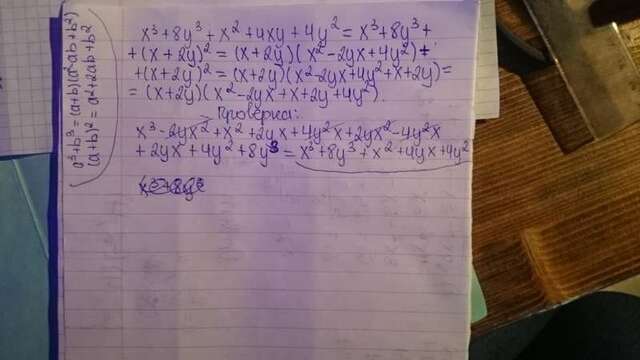 a³+b³=(a+b)(a²-ab+b²)
(a+b)²=a²+2ab+b²
x³+8y³+x²+4xy+4y²=x³+8y³+
+(x+2y)²=(x+2y)(x²-2yx+4y²)+
+(x+2y)²=(x+2y)(x²-2yx+4y²+x+2y)=
=(x+2y)(x²-2yx+x+2y+4y²).
Проверка:
x³-2yx²+x²+2yx+4y²x+2yx²-4y²x
+2yx+4y²+8y³=x³+8y³+x²+4yx+4y²